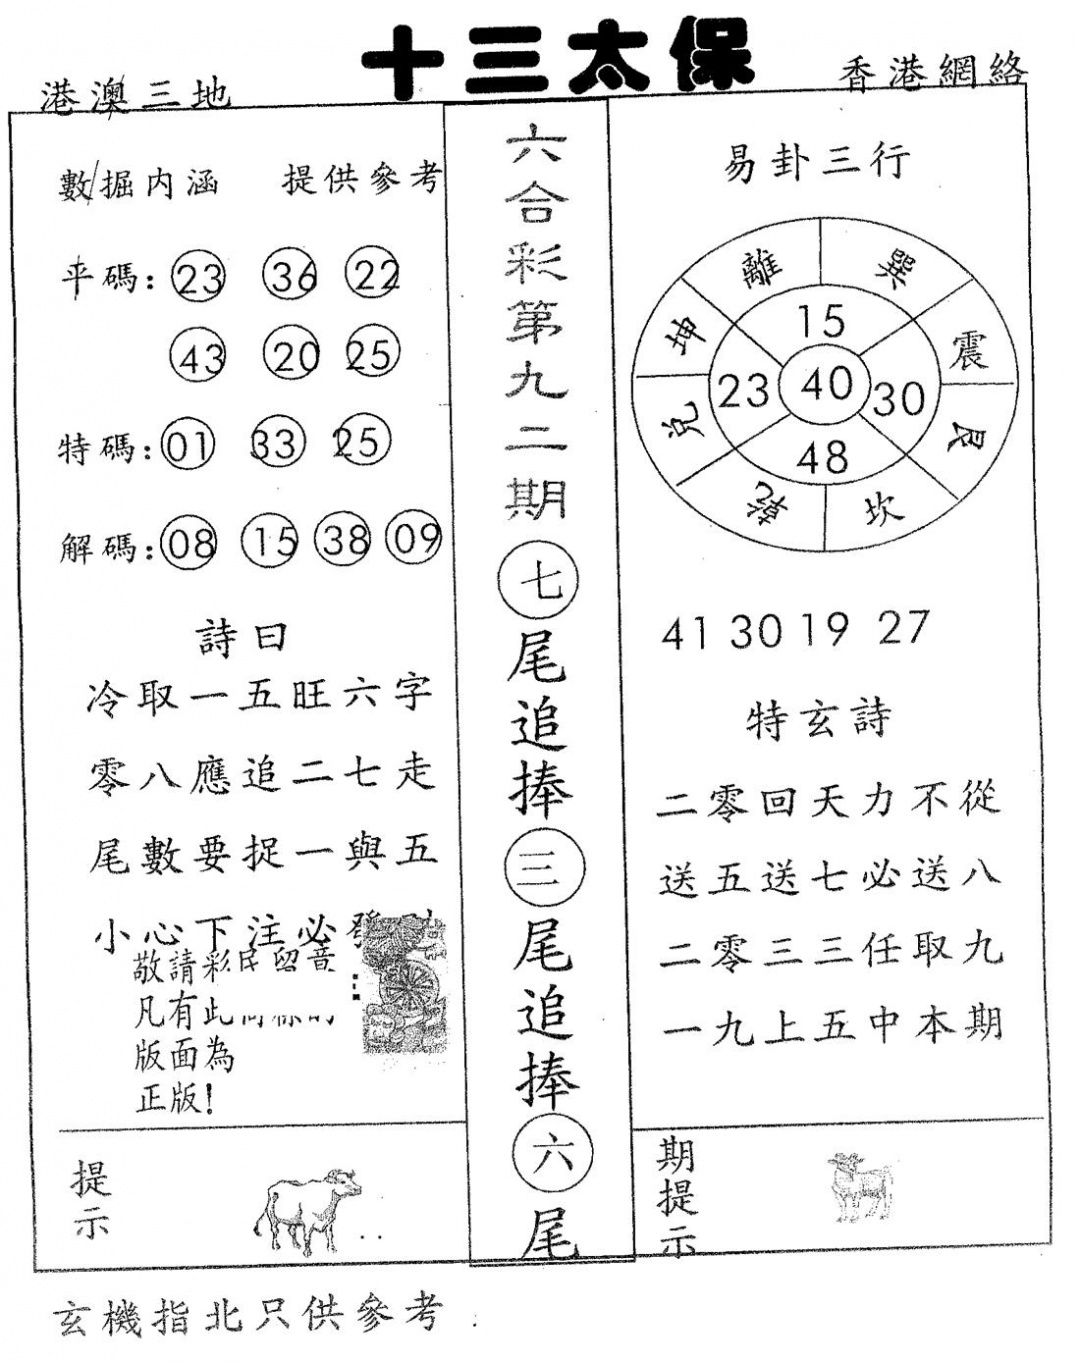 十三太保
港澳三地
香港網絡
數掘内涵 提供參考
平碼：23 36 22
43 20 25
特碼：01 33 25
解碼：08 15 38 09
詩曰
冷取一五旺六字
零八應追二七走
尾數要捉一與五
小心下注必發財
敬請彩民留意
凡有此
版面為
正版！
提示
六合彩第九二期七尾追捧三尾追捧六尾
易卦三行
離 巽
坤 震
兌 艮
乾 坎
15
23 40 30
48
41 30 19 27
特玄詩
二零回天力不從
送五送七必送八
二零三三任取九
一九上五中本期
期提示
玄機指北只供參考